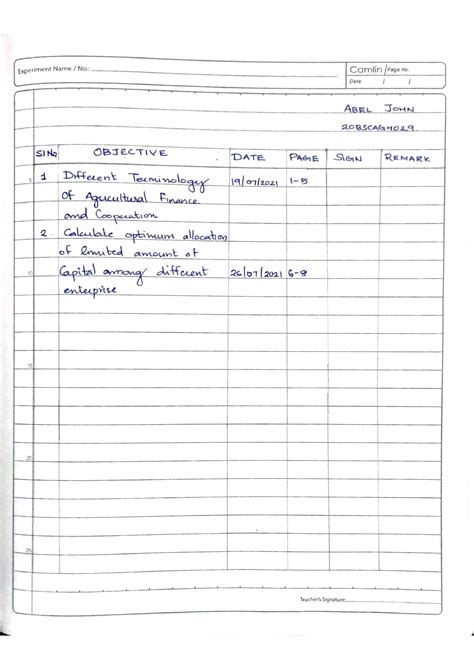 Experiment Name / No.: Camlin Page No.
Date / /
ABEL JOHN
20BSCAG4029
Sl No OBJECTIVE DATE PAGE SIGN REMARK
1 Different Terminology 19/07/2021 1-5
5 of Agricultural Finance
and Cooperation
2. Calculate optimum allocation
of limited amount of
10 Capital among different 26/07/2021 6-8
enterprise
15
20
25
Teacher's Signature: